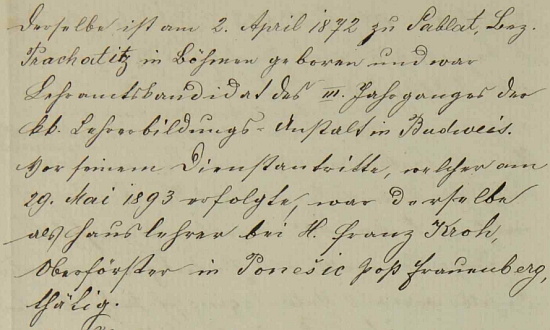 Derselbe ist am 2. April 1872 zu Sablat, Bez.
Prachatitz in Böhmen geboren und war
Lehramtskandidat des III. Jahrganges der
kk. Lehrerbildungs-Anstalt in Budweis.
Vor seinem Dienstantritte, welcher am
29. Mai 1893 erfolgte, war derselbe
als Hauslehrer bei H. Franz Kroh,
Oberförster in Ponešic Post Frauenberg,
thätig.